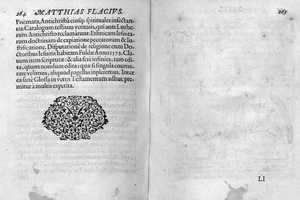 264 MATTHIAS FLACIVS.
Poëmata, Antichristũ eiusq́; spirituales insectantia.
Catalogum testium veritatis, qui ante Lutherum
Antichristo reclamarunt. Ethnicam Iesuitarum
doctrinam de expiatione peccatorum & iustificatione.
Disputationē de religione cum Doctoribus
Iesuitis habitam Fuldæ Anno 1573. Clauem
item Scripturæ: & alia ferè infinita, tum edita,
quorum nondum edita: quæ si singula enumerare
velimus, aliquod pagellas impleremus. Inter
cætera Glossa in vetus Testamentum adhuc premitur
à multis expetita.
265
Ll